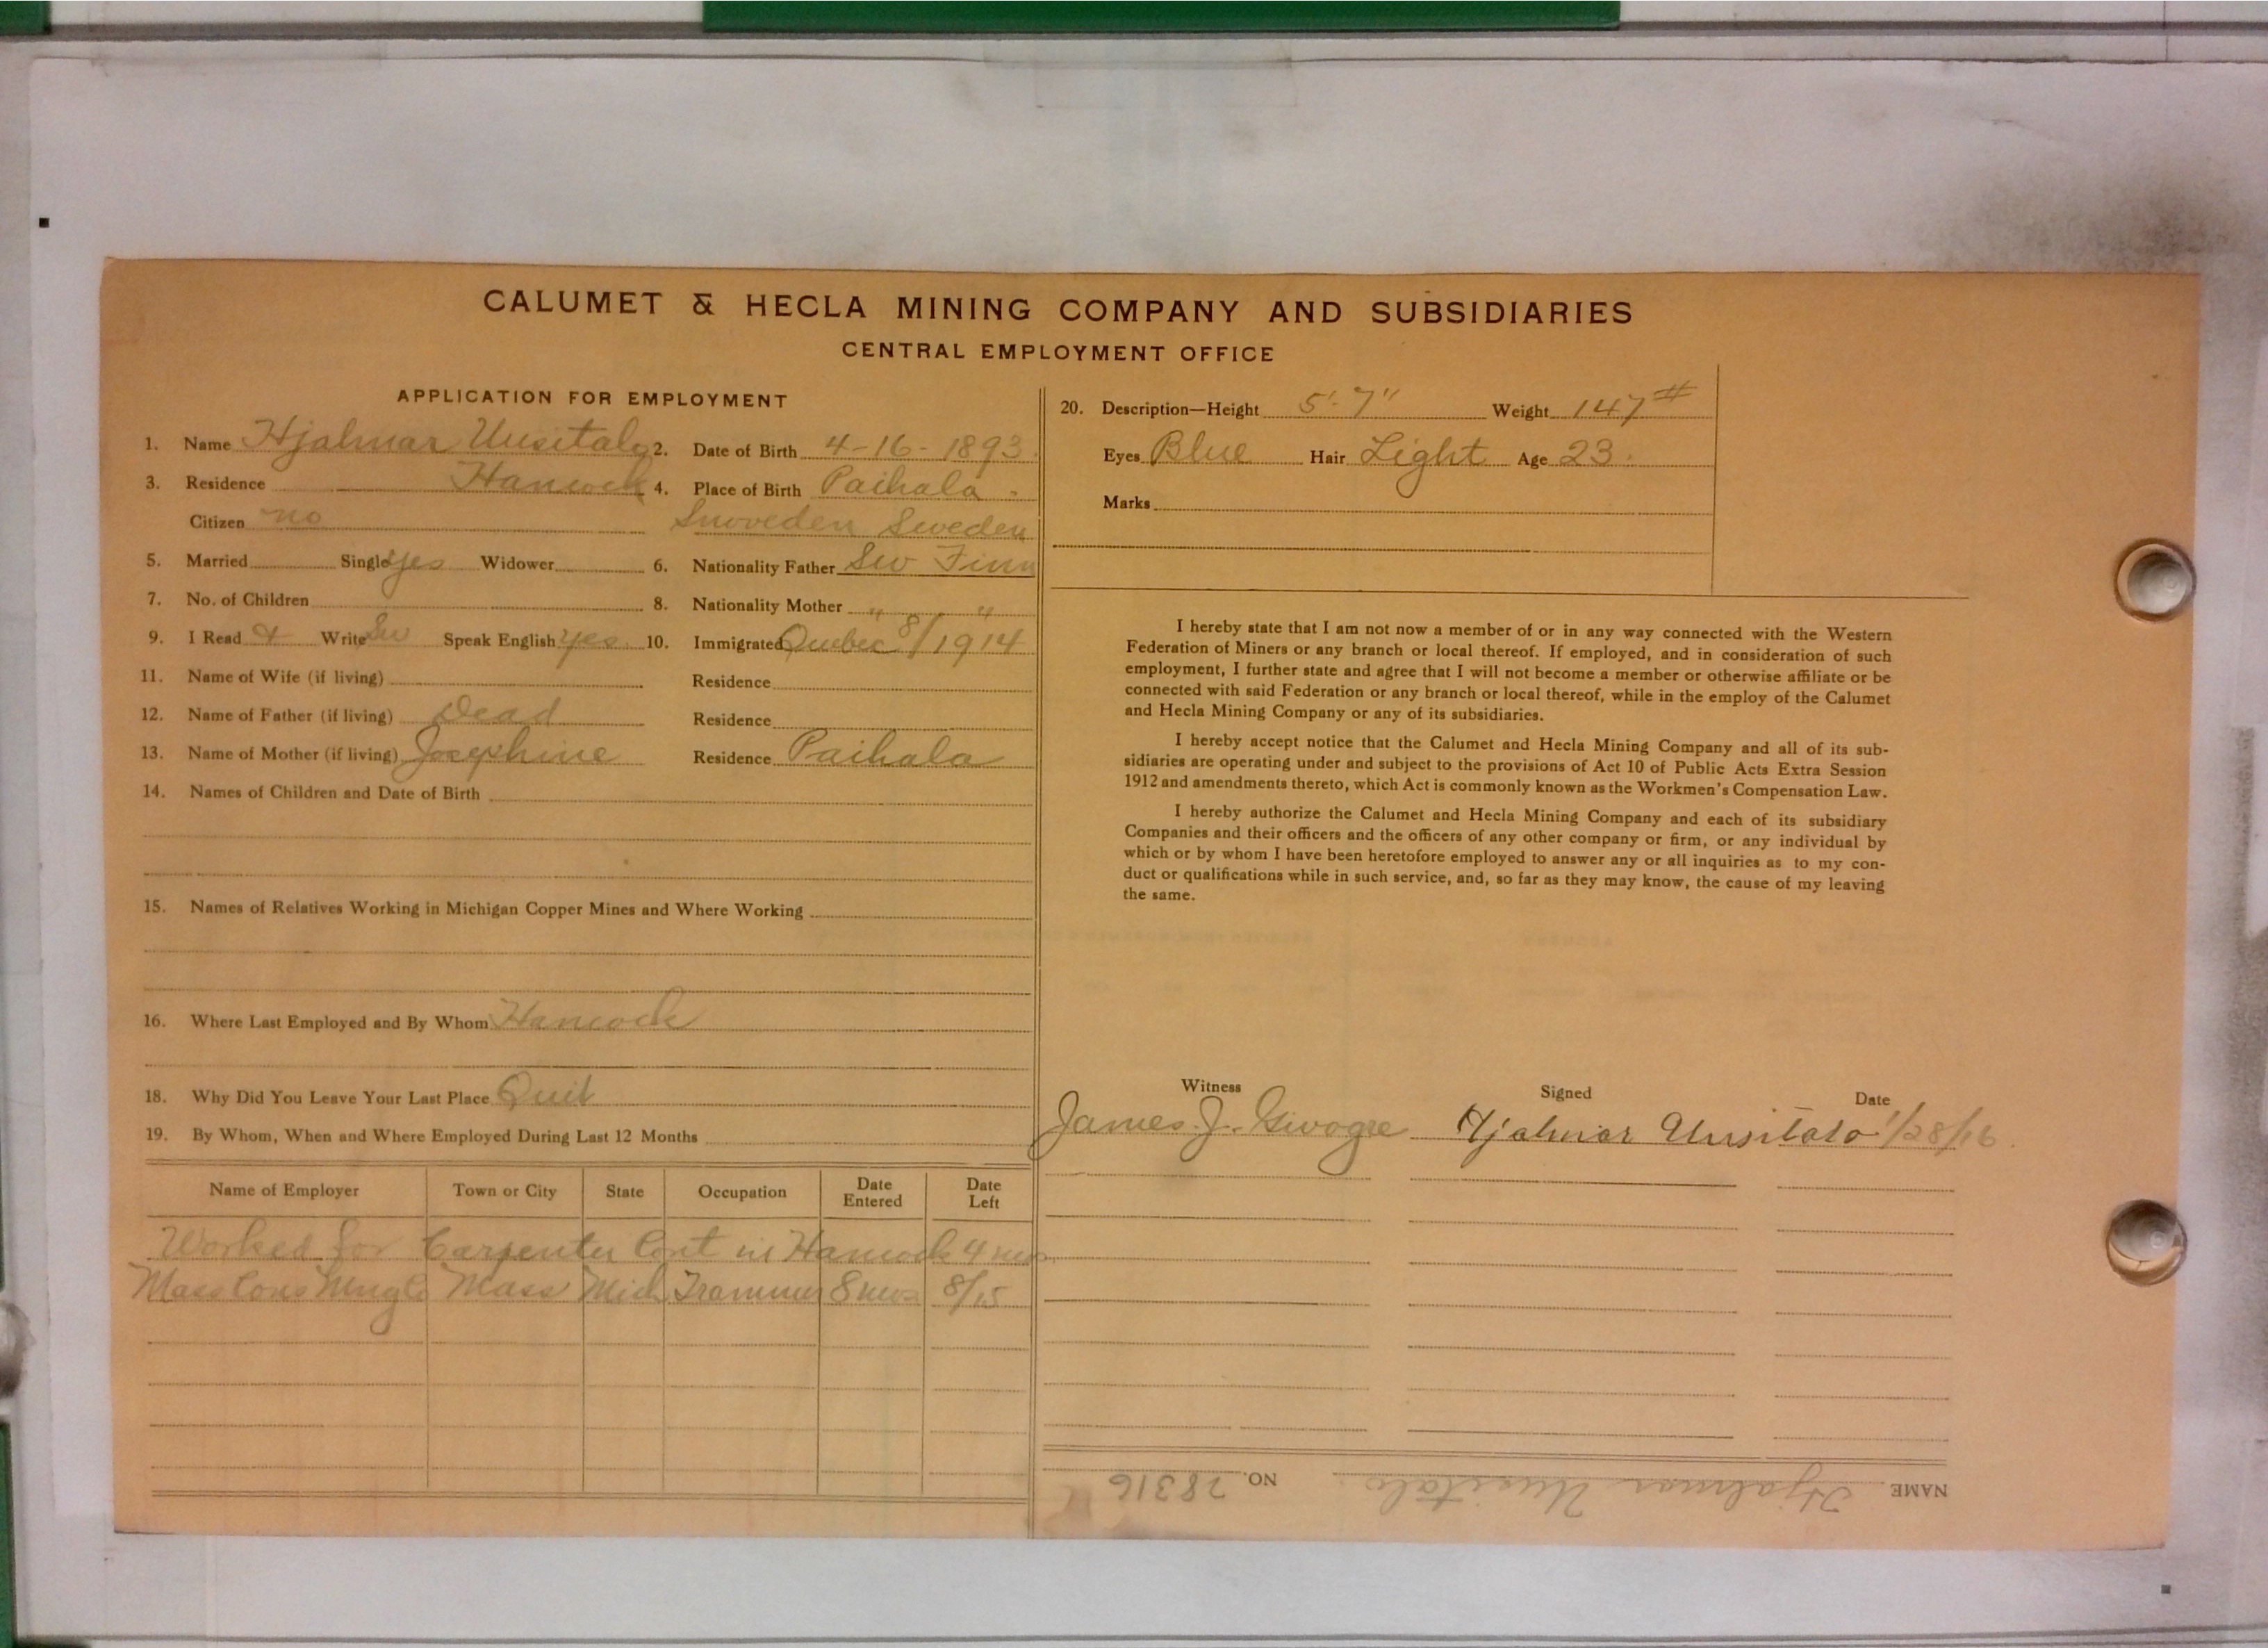 CALUMET & HECLA MINING COMPANY AND SUBSIDIARIES
CENTRAL EMPLOYMENT OFFICE
APPLICATION FOR EMPLOYMENT
1. Name Hjalmar Uusitalo 2. Date of Birth 4-16-1893
3. Residence Hancock 4. Place of Birth Paihala
Citizen no Sweden
5. Married Single yes Widower 6. Nationality Father Sw Finn
7. No. of Children 8. Nationality Mother " "
9. I Read & Write Sw Speak English yes 10. Immigrated Quebec 8/1914
11. Name of Wife (if living) Residence
12. Name of Father (if living) Dead Residence
13. Name of Mother (if living) Josephine Residence Paihala
14. Names of Children and Date of Birth
15. Names of Relatives Working in Michigan Copper Mines and Where Working
16. Where Last Employed and By Whom Hancock
18. Why Did You Leave Your Last Place Quit
19. By Whom, When and Where Employed During Last 12 Months
Name of Employer Town or City State Occupation Date Entered Date Left
Worked for Carpenter Cont in Hancock 4 mos
Mass Cons Mass Mich Trammer 8 mos 8/15
20. Description—Height 5'-7" Weight 147#
Eyes Blue Hair Light Age 23
Marks
I hereby state that I am not now a member of or in any way connected with the Western
Federation of Miners or any branch or local thereof. If employed, and in consideration of such
employment, I further state and agree that I will not become a member or otherwise affiliate or be
connected with said Federation or any branch or local thereof, while in the employ of the Calumet
and Hecla Mining Company or any of its subsidiaries.
I hereby accept notice that the Calumet and Hecla Mining Company and all of its sub-
sidiaries are operating under and subject to the provisions of Act 10 of Public Acts Extra Session
1912 and amendments thereto, which Act is commonly known as the Workmen's Compensation Law.
I hereby authorize the Calumet and Hecla Mining Company and each of its subsidiary
Companies and their officers and the officers of any other company or firm, or any individual by
which or by whom I have been heretofore employed to answer any or all inquiries as to my con-
duct or qualifications while in such service, and, so far as they may know, the cause of my leaving
the same.
Witness Signed Date
James J. Hjalmar Uusitalo 1/28/16
NAME Hjalmar Uusitalo NO. 28316